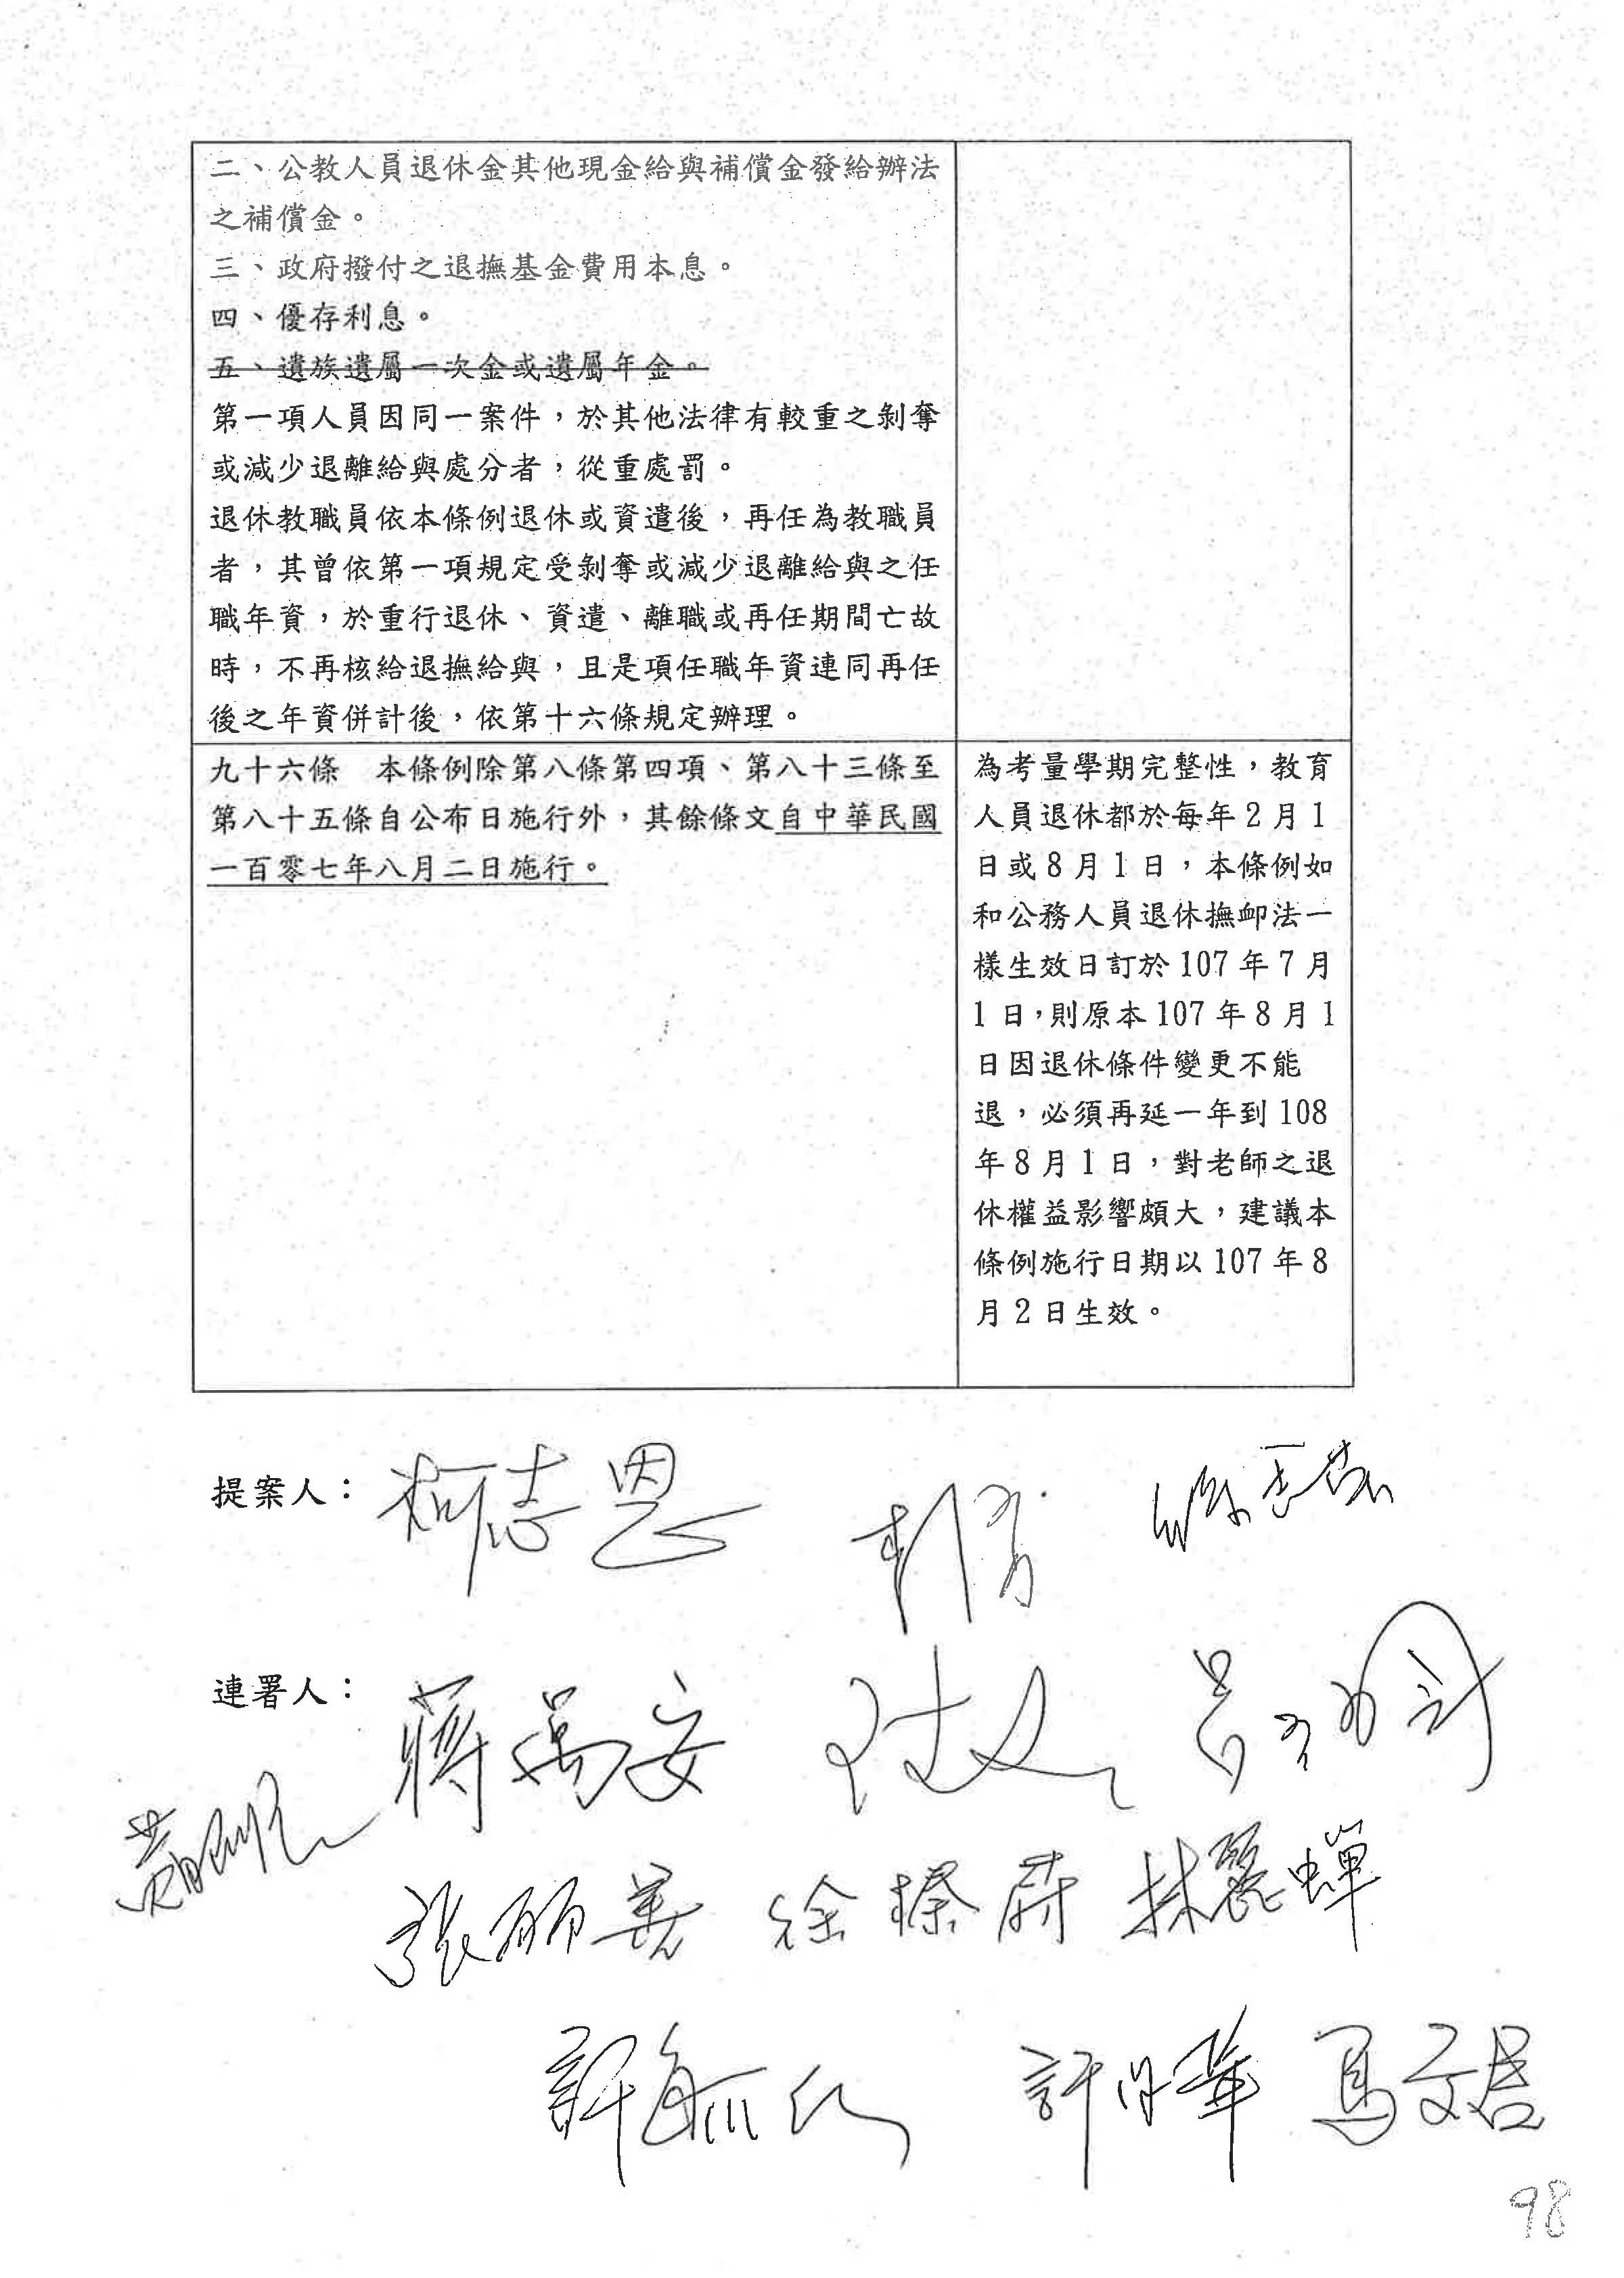 二、公教人員退休金其他現金給與補償金發給辦法
之補償金。
三、政府撥付之退撫基金費用本息。
四、優存利息。
五、遺族遺屬一次金或遺屬年金。
第一項人員因同一案件，於其他法律有較重之剝奪
或減少退離給與處分者，從重處罰。
退休教職員依本條例退休或資遣後，再任為教職員
者，其曾依第一項規定受剝奪或減少退離給與之任
職年資，於重行退休、資遣、離職或再任期間亡故
時，不再核給退撫給與，且是項任職年資連同再任
後之年資併計後，依第十六條規定辦理。
九十六條　本條例除第八條第四項、第八十三條至
第八十五條自公布日施行外，其餘條文自中華民國
一百零七年八月二日施行。
為考量學期完整性，教育
人員退休都於每年2月1
日或8月1日，本條例如
和公務人員退休撫卹法一
樣生效日訂於107年7月
1日，則原本107年8月1
日因退休條件變更不能
退，必須再延一年到108
年8月1日，對老師之退
休權益影響頗大，建議本
條例施行日期以107年8
月2日生效。
提案人：柯志恩
連署人：蔣萬安
張麗善 徐榛蔚 林麗蟬
許毓仁 許淑華 馬文君
98